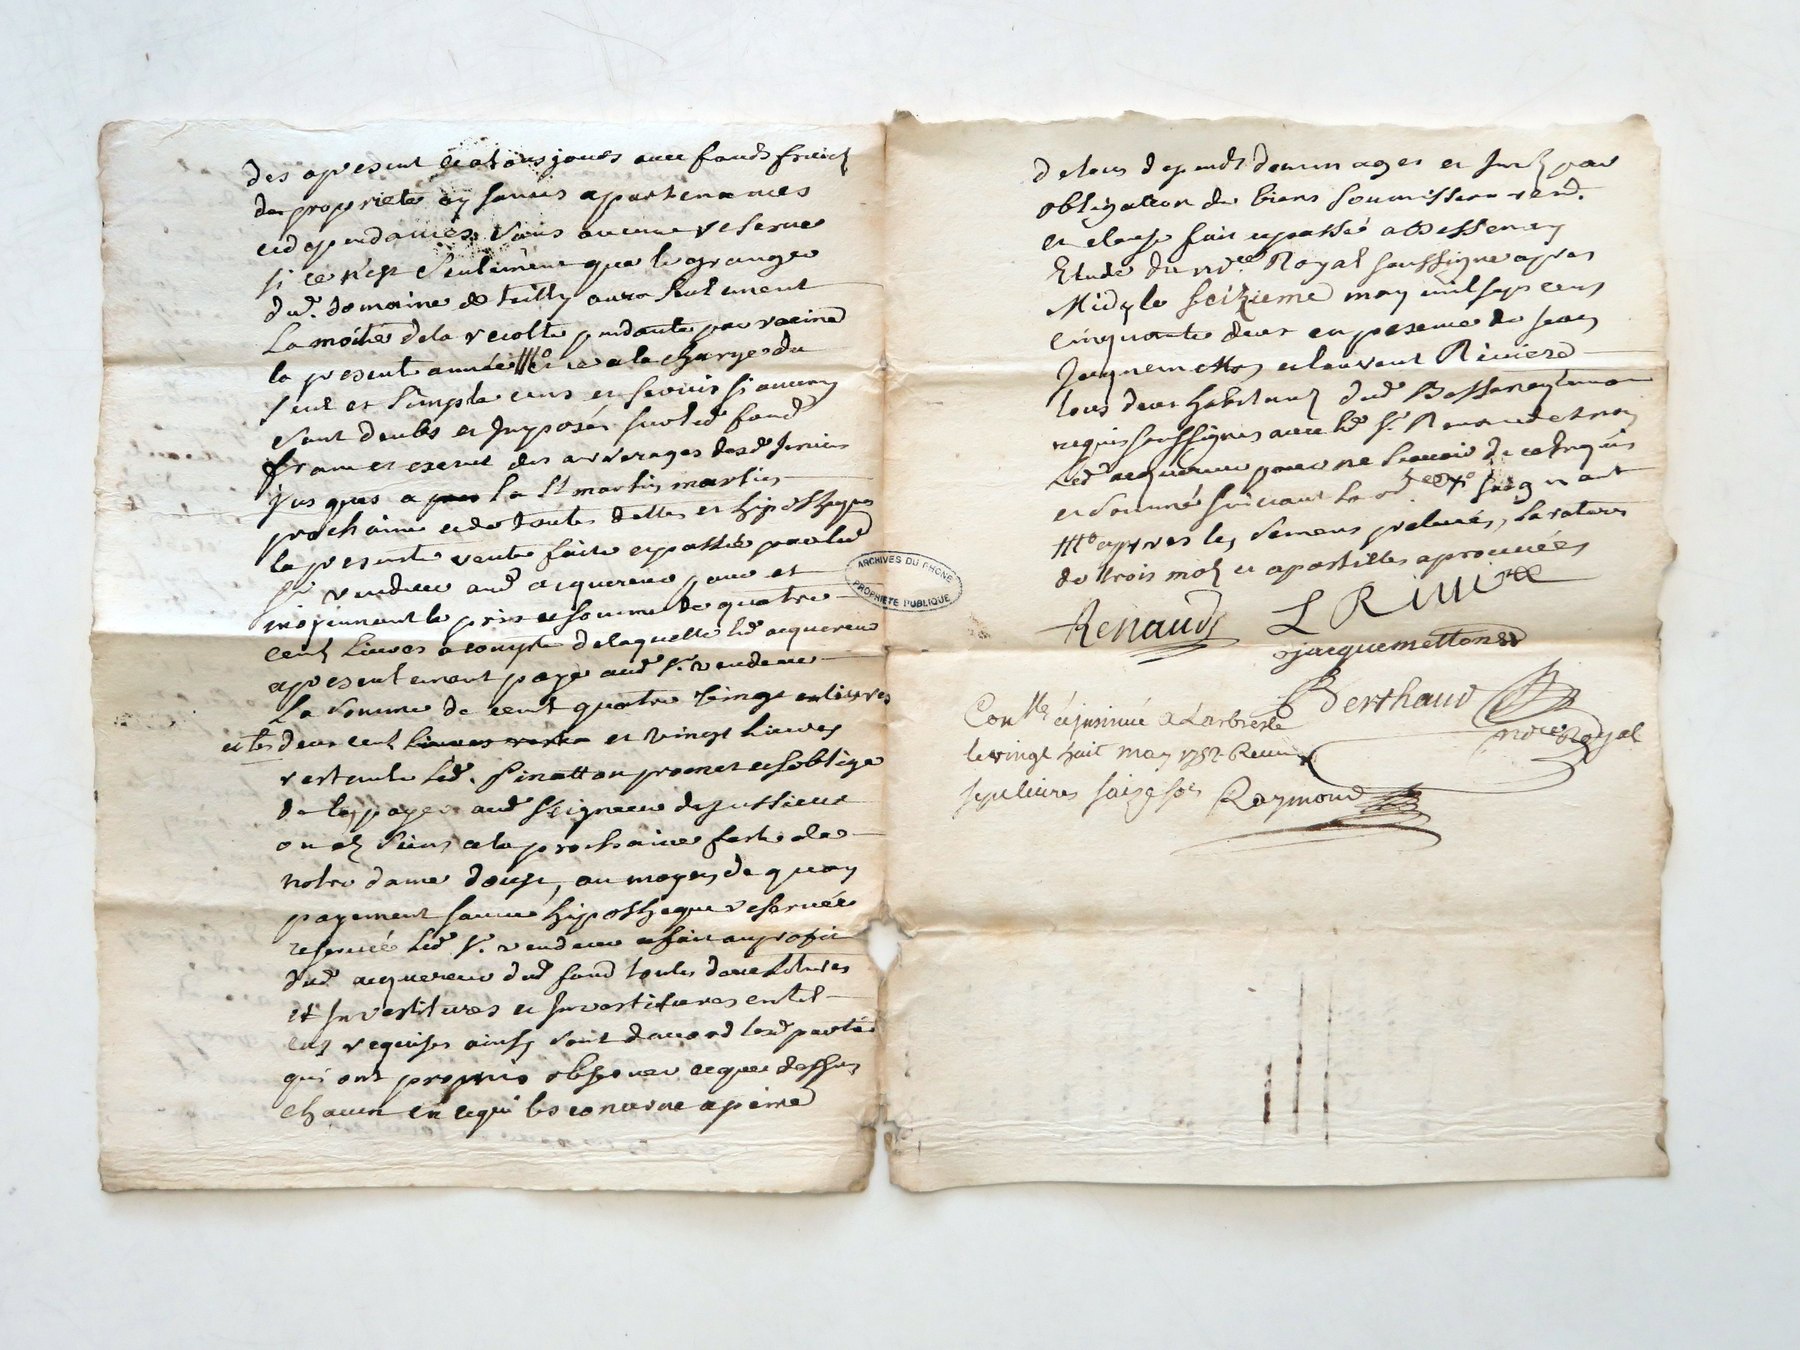 des apresent et a tousjours avec fonds fruict
de propriete ey sances apartenances
et dependances sans aucune reserve
si ce n'est seulement que le granger
dud. domaine de tully aura seulement
La moitié de la recolte pendante par racine
la presente année et ce a la charge du
seul et simple cens et servis si aucuns
sont deubs et Imposés sur led fond
franc et exemt des arrerages desd. servis
jusques a la St martin martin
prochaine et de toutes dettes et hipotheques
la presente vente faite et passée par led
Sr vendeur aud acquereur pour et
moyennant le prix et somme de quatre
cent Livres a compte de laquelle led acquereur
a presentement payé aud Sr. vendeur
La somme de cent quatre vingt livres
et les deux cent et vingt livres
restante led. Pinatton promet et s'oblige
de les payer aud Seigneur de jussieux
ou es siens a la prochaine feste de
notre dame d'oust, au moyen de quoy
payement sauve hipotheque reservée
reservée led Sr. vendeur a fait au profit
dud acquereur dud fond toutes devetitures
et Investitures et Investitures en tel
cas requises ainsy sont d'accord lesd parties
qui ont promis observer ce que dessus
chacun en ce qui les concerne a peine
de tous depends dommages et Int par
obligation de biens soumissions rend.
et clause fait et passé a Bessenay
Etude du nore. Royal soussigné apres
Midy le seizieme may mil sept cens
cinquante deux en presence de jean
jacquemetton et laurent Riviere
tous deux habitans dud Bessenay
requis soussignés avec led Sr. Renaud et non
led acquereur pour ne sçavoir de ce Enquis
et sommé suivant
apres les semens relevés, la rature
de trois mots et apostilles aprouvées
Renaud
L Riviere
jacquemetton
Berthaud
nore Royal
Conlle et insinué a Larbresle
le vingt huit may 1752 Recu
sept livres saize sols Raymond
ARCHIVES DU RHONE
PROPRIÉTÉ PUBLIQUE